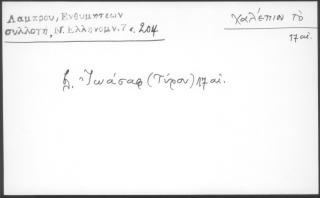 Λάμπρου, Ἐνθυμήσεων
συλλογή, Ν. Ἑλληνομν. 7 σ. 204
Χαλέπιον τὸ
17 αἰ.
Ἰωάσαφ (Τύρου) 17 αἰ.